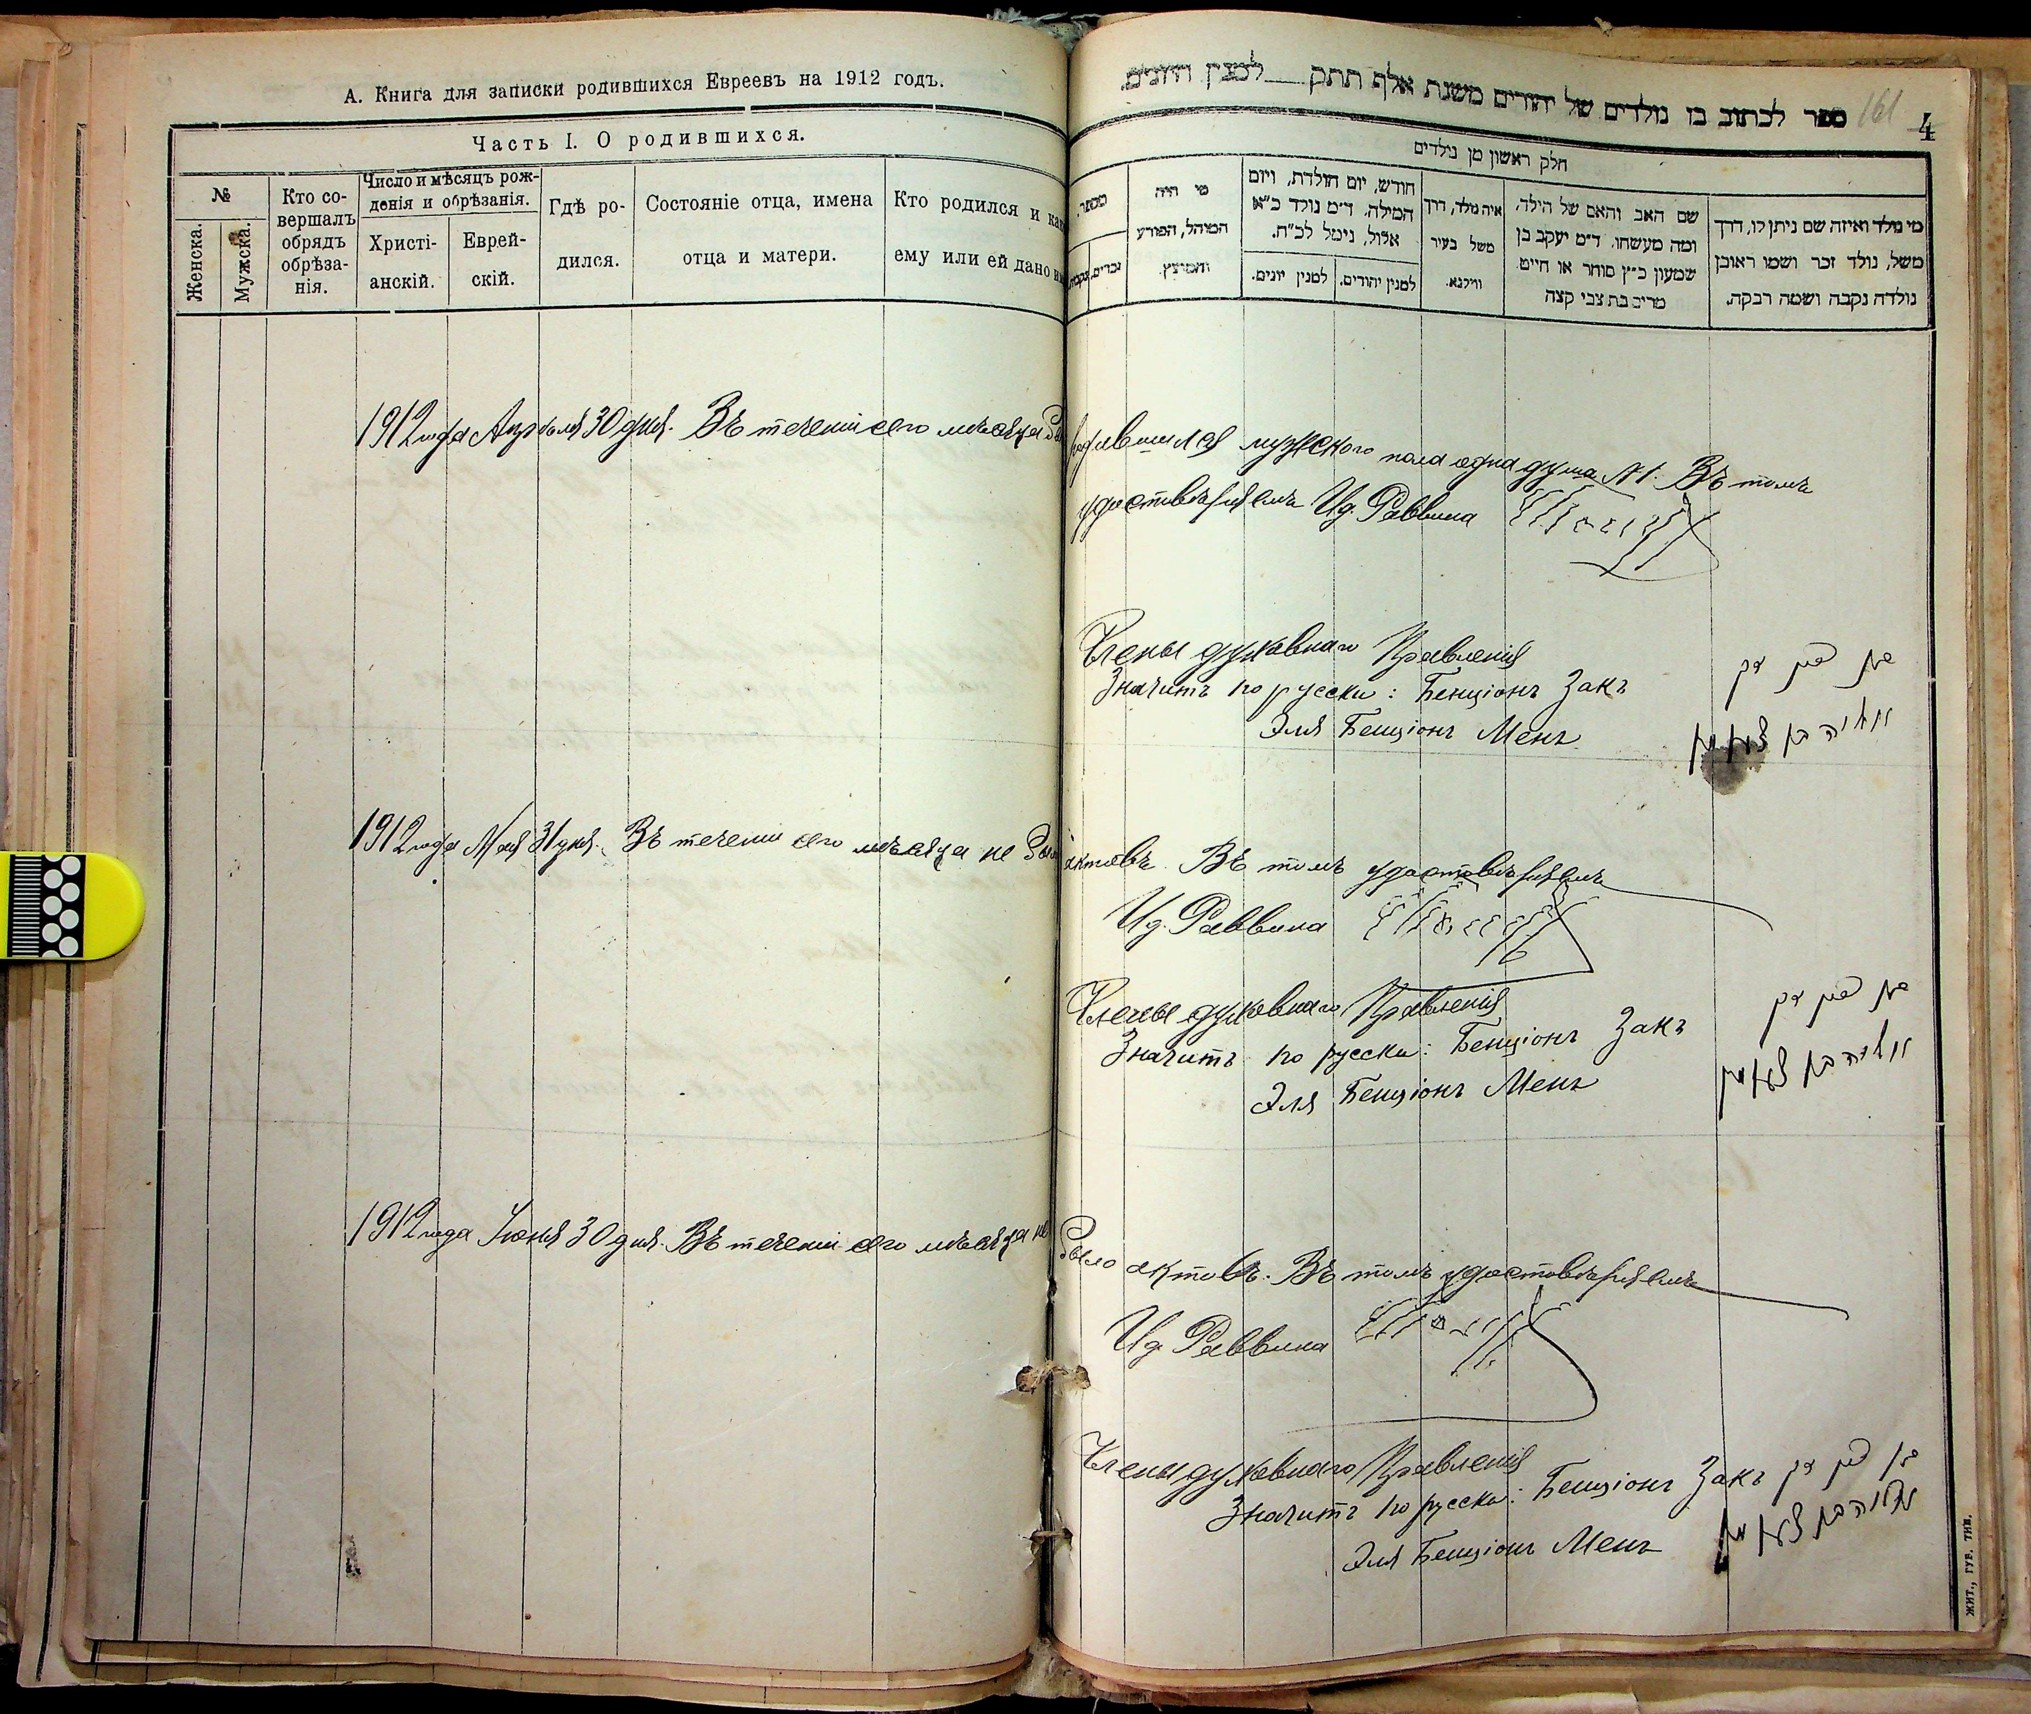 А. Книга для записки родившихся Евреевъ на 1912 годъ.
Часть I. О родившихся.
№
Женска.
Мужска.
Кто со-
вершалъ
обрядъ
обрѣза-
нія.
Число и мѣсяцъ рож-
денія и обрѣзанія.
Христі-
анскій.
Еврей-
скій.
Гдѣ ро-
дился.
Состояніе отца, имена
отца и матери.
Кто родился и как
ему или ей дано им
ספר לכתוב בו נולדים של יהודים משנת אלף תתק למנין היונים.
161
4
חלק ראשון מן נולדים
מספר.
נקבות.
זכרים.
מי היה
המוהל, הפורע
והמוצץ.
חודש, יום הולדת, ויום
המילה. ד״מ נולד כ״א
אלול, נימל לכ״ח.
למנין יונים.
למנין יהודים.
איה נולד, דרך
משל בעיר
ווילנא.
שם האב והאם של הילד,
ומה מעשהו. ד״מ יעקב בן
שמעון כ״ץ סוחר או חייט.
מרים בת צבי קצה
מי נולד ואיזה שם ניתן לו, דרך
משל, נולד זכר ושמו ראובן
נולדה נקבה ושמה רבקה.
1912 года Апрѣля 30 дня. Въ теченіи сего мѣсяца
родившился мужеского пола одна душа №1. Въ томъ
удостовѣряемъ И.д. Раввина
Члены духовнаго Правленія
Значитъ по русски: Бенціонъ Закъ
Эля Бенціонъ Менъ
1912 года Мая 31 дня. Въ течении сего мѣсяца не было
актовъ. Въ томъ удостовѣряемъ
И.д. Раввина
Члены духовнаго Правленія
Значитъ по русски: Бенціонъ Закъ
Эля Бенціонъ Менъ
1912 года Іюня 30 дня. Въ теченіи сего мѣсяца не
было актовъ. Въ томъ удостовѣряемъ
И.д. Раввина
Члены духовнаго Правленія
Значитъ по русски: Бенціонъ Закъ
Эля Бенціонъ Менъ
ЖИТ., ГУБ. ТИП.